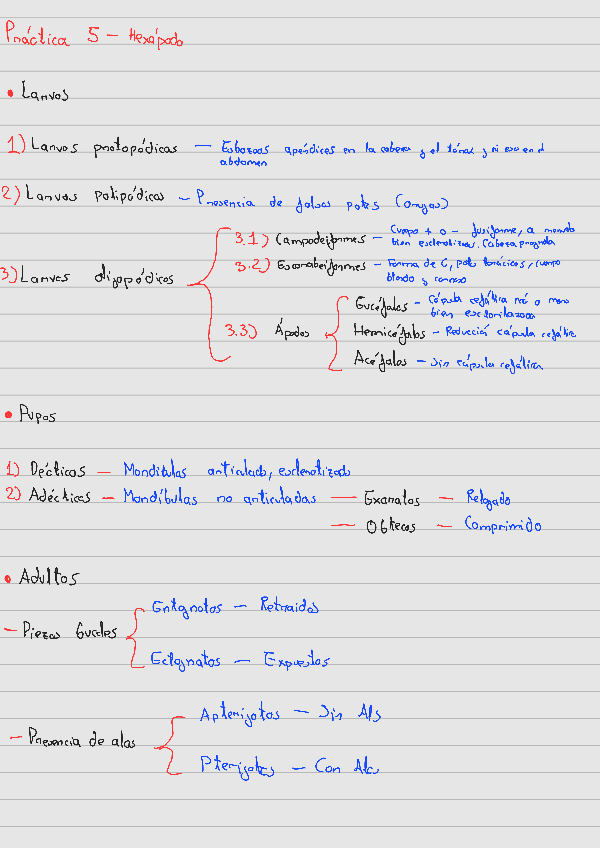 Práctica 5 - Hexápodo
• Larvas
1) Larvas protopódicas — Esbozos apéndices en la cabeza y el tórax y ni eso en el
abdomen
2) Larvas polipódicas - Presencia de falsas patas (orugas)
3) Larvas oligopódicas
3.1) Campodeiformes - Cuerpo + o - fusiforme, a menudo
bien esclerotizas. Cabeza prognata
3.2) Escarabeiformes - Forma de C, patas torácicas, cuerpo
blando y carnoso
3.3) Ápodos
Eucéfalos - Cápsula cefálica más o menos
bien esclerotizada
Hemicéfalos - Reducción cápsula cefálica
Acéfalos - Sin cápsula cefálica
• Pupas
1) Décticas — Mandibulas articulada, esclerotizada
2) Adécticas - Mandíbulas no articuladas — Exaratas — Relegado
— Obtecas — Comprimido
• Adultos
- Piezas bucales
Entognatos - Retraidas
Ectognatos - Expuestas
- Presencia de alas
Apterigotos - Sin Alas
Pterigotas - Con Alas